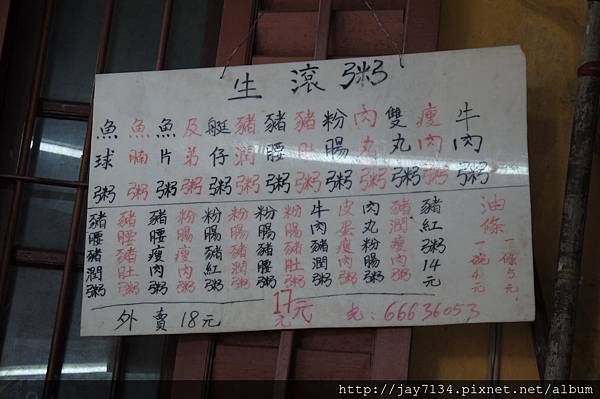 生滾粥
牛肉粥
瘦肉粥
雙丸粥
肉丸粥
粉腸粥
豬肚粥
豬腰粥
豬潤粥
艇仔粥
及弟粥
魚片粥
魚腩粥
魚球粥
油條
一條5元
一碗4元
豬紅粥14元
豬潤瘦肉粥
肉丸粉腸粥
皮蛋瘦肉粥
牛肉豬潤粥
粉腸豬肚粥
粉腸豬腰粥
粉腸豬潤粥
粉腸豬紅粥
粉腸瘦肉粥
豬腰瘦肉粥
豬腰豬肚粥
豬腰豬潤粥
外賣18元
17元
66636053
http://jay7134.pixnet.net/album